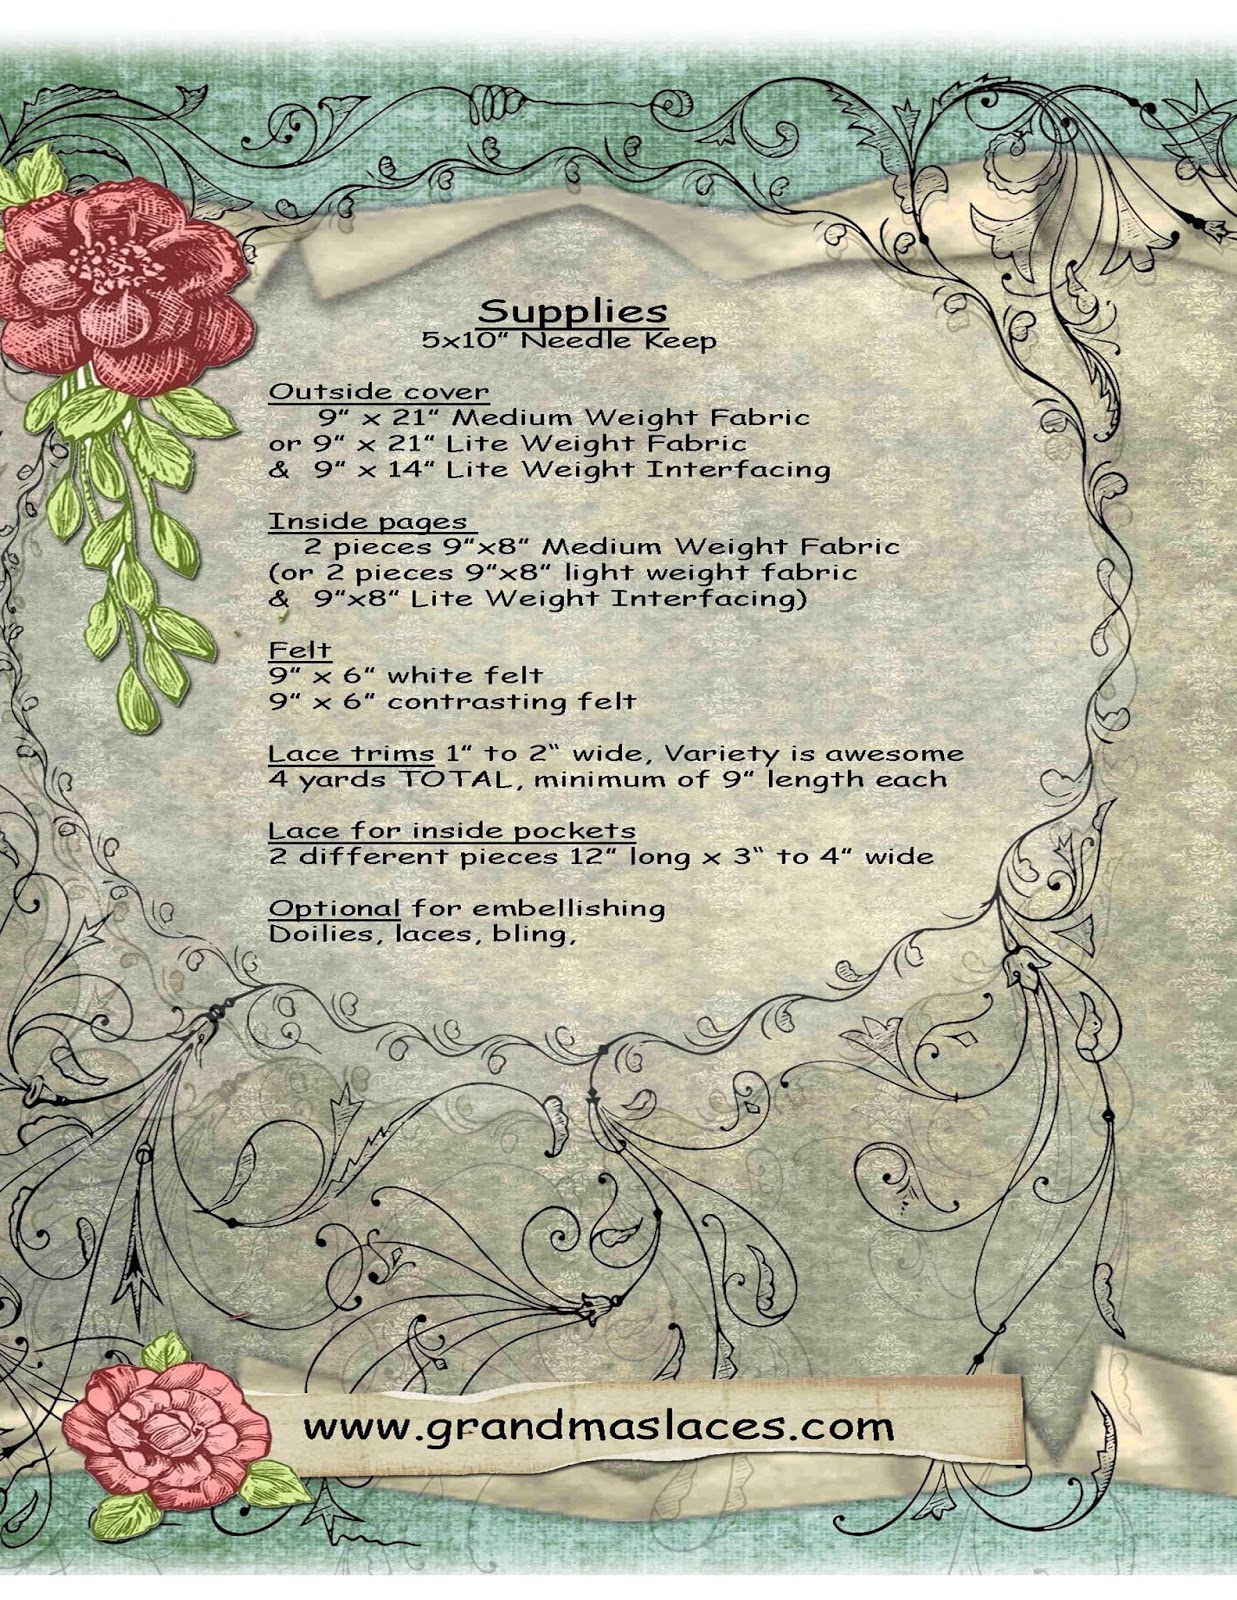 Supplies
5x10" Needle Keep
Outside cover
9" x 21" Medium Weight Fabric
or 9" x 21" Lite Weight Fabric
& 9" x 14" Lite Weight Interfacing
Inside pages
2 pieces 9"x8" Medium Weight Fabric
(or 2 pieces 9"x8" light weight fabric
& 9"x8" Lite Weight Interfacing)
Felt
9" x 6" white felt
9" x 6" contrasting felt
Lace trims 1" to 2" wide, Variety is awesome
4 yards TOTAL, minimum of 9" length each
Lace for inside pockets
2 different pieces 12" long x 3" to 4" wide
Optional for embellishing
Doilies, laces, bling,
www.grandmaslaces.com